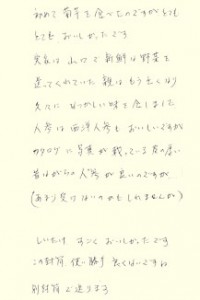 初めて菊芋を食べたのですがとても
とてもおいしかったです
実家は山口で新鮮な野菜を
送ってくれていた親はもう亡くなり
久々になつかしい味を食しました
人参は西洋人参もおいしいですが
カタログに写真が載っている方の長い
昔ながらの人参が良いのですが
(あまり売けないのかもしれませんね)
しいたけ すごくおいしかったです
この封筒 使い勝手 良くないですね
別封筒で送ります